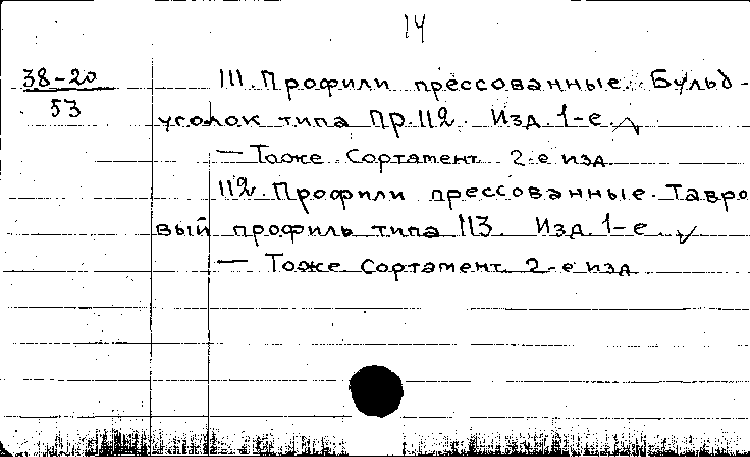 14
38-20
53
111. Профили прессованные. Бульб-
уголок типа Пр.112. Изд. 1-е.
— Тоже. Сортамент. 2-е изд.
112. Профили прессованные. Тавро
вый профиль типа 113. Изд. 1-е.
— Тоже. Сортамент. 2-е изд.